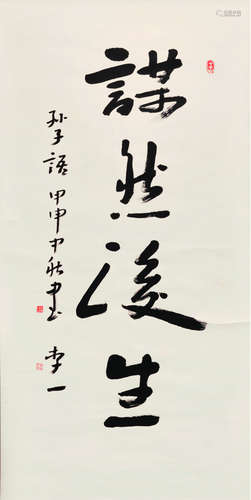 謀然後生
孙子语 甲申中秋书 李一